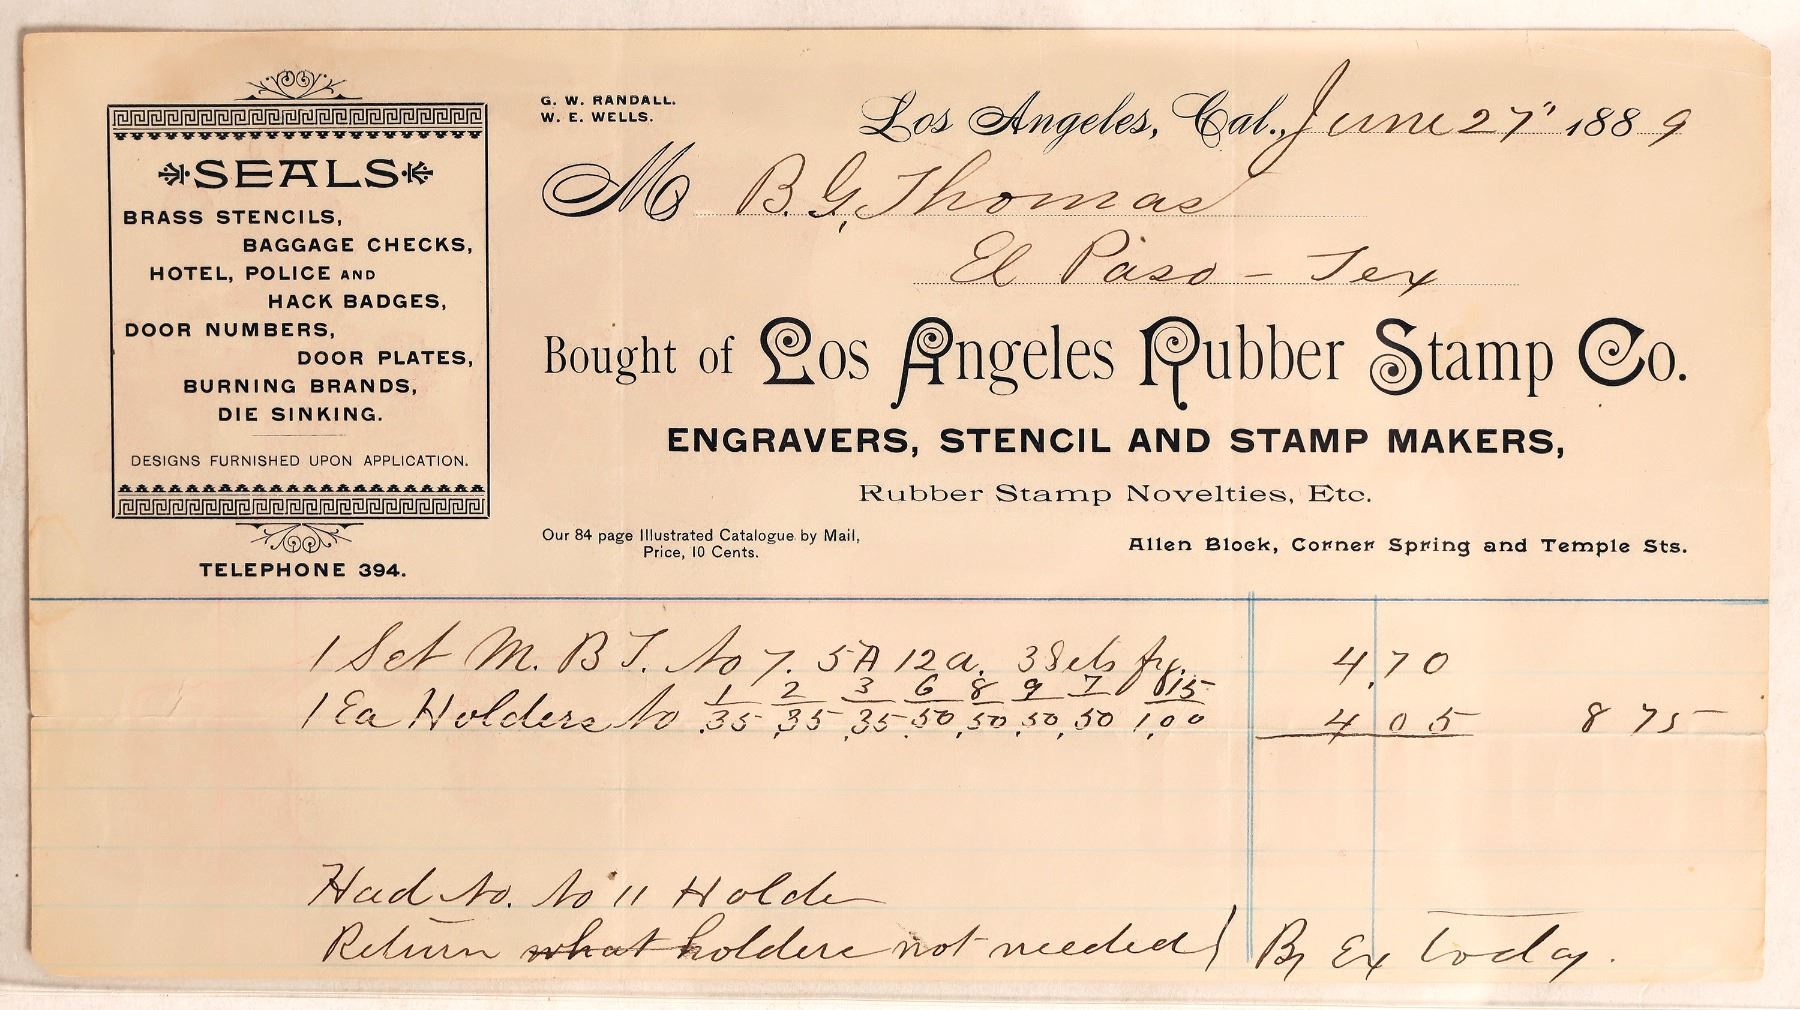 SEALS
BRASS STENCILS,
BAGGAGE CHECKS,
HOTEL, POLICE AND
HACK BADGES,
DOOR NUMBERS,
DOOR PLATES,
BURNING BRANDS,
DIE SINKING.
DESIGNS FURNISHED UPON APPLICATION.
TELEPHONE 394.
G. W. RANDALL.
W. E. WELLS.
Los Angeles, Cal., June 27" 1889
M B. G. Thomas
El Paso - Tex
Bought of Los Angeles Rubber Stamp Co.
ENGRAVERS, STENCIL AND STAMP MAKERS,
Rubber Stamp Novelties, Etc.
Our 84 page Illustrated Catalogue by Mail,
Price, 10 Cents.
Allen Block, Corner Spring and Temple Sts.
1 Set M. B T. No 7. 5A 12a. 3 Sets 4.70
1 2 3 6 8 9 7 15
1 Ea Holders No .35 .35 .35 .50 .50 .50 .50 1.00 4 05 8 75
Had No. No 11 Holder
Return what holders not needed) By Ex today.